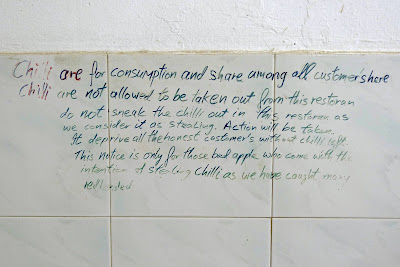 Chilli are for consumption and share among all customer's here
Chilli are not allowed to be taken out from this restoran
do not sneak the chilli out in this restoran as
we consider it as stealing. Action will be taken.
It deprive all the honest customer's without chilli left.
This notice is only for those bad apple who come with the
intention of stealing chilli as we have caught many
redhanded